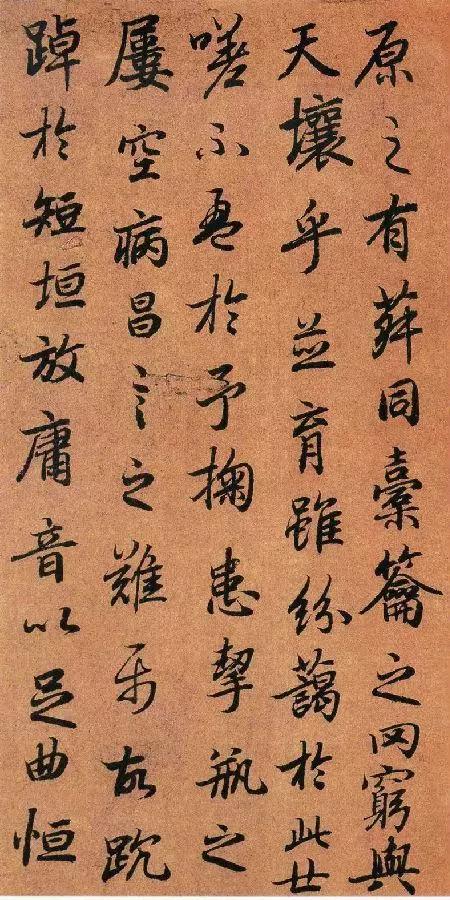 原之有菽同橐籥之罔窮與
天壤乎並育雖紛藹於此世
嗟不盈於予掬患挈瓶之
屢空病昌言之難属故踸
踔於短垣放庸音以足曲恒